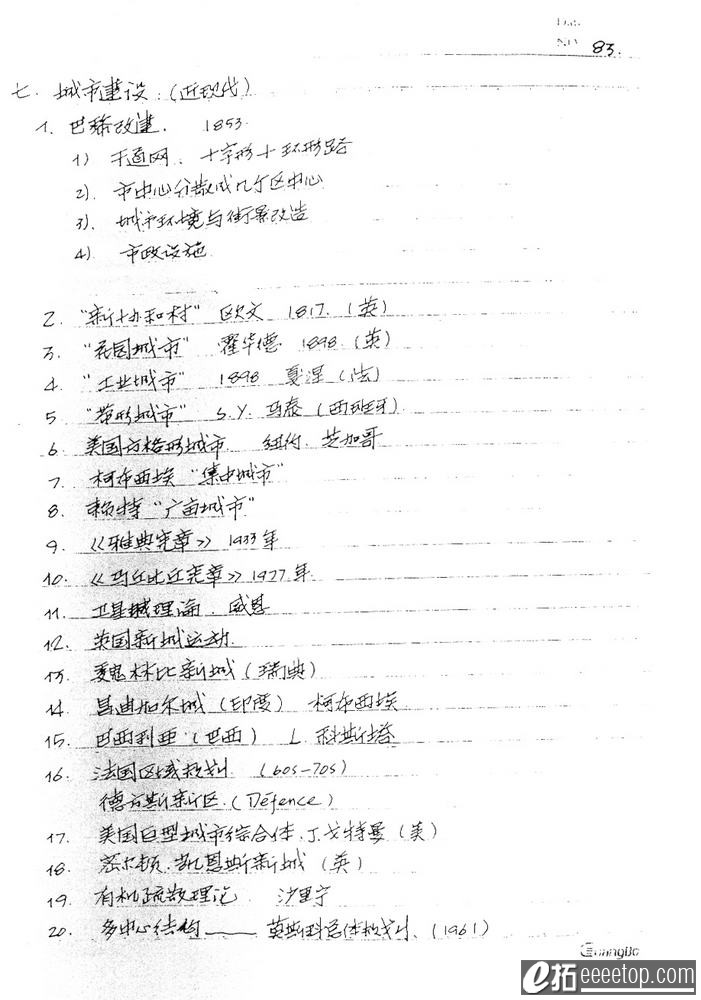 Date
No 83.
七. 城市建设. (近现代)
1. 巴黎改建. 1853.
1) 干道网、十字形十环形路
2). 市中心分散成几个区中心
3). 城市环境与街景改造
4). 市政设施
2. "新协和村" 欧文 1817. (英)
3. "花园城市" 霍华德 1898. (英)
4. "工业城市" 1898 夏涅 (法)
5 "带形城市" S.Y. 马泰 (西班牙)
6. 美国方格形城市. 纽约. 芝加哥
7. 柯布西埃 "集中城市"
8. 赖特 "广亩城市"
9. 《雅典宪章》 1933年
10. 《马丘比丘宪章》 1977年
11. 卫星城理论. 威恩
12. 英国新城运动.
13. 魏林比新城 (瑞典)
14. 昌迪加尔城 (印度) 柯布西埃
15. 巴西利亚 (巴西) L. 科斯塔
16. 法国区域规划 (60s-70s)
德方斯新区. (Défence)
17. 美国巨型城市综合体. J. 戈特曼 (美)
18. 密尔顿. 凯恩斯新城 (英)
19. 有机疏散理论 沙里宁
20. 多中心结构 —— 莫斯科总体规划. (1961)
GuangBo
e拓 eeeetop.com